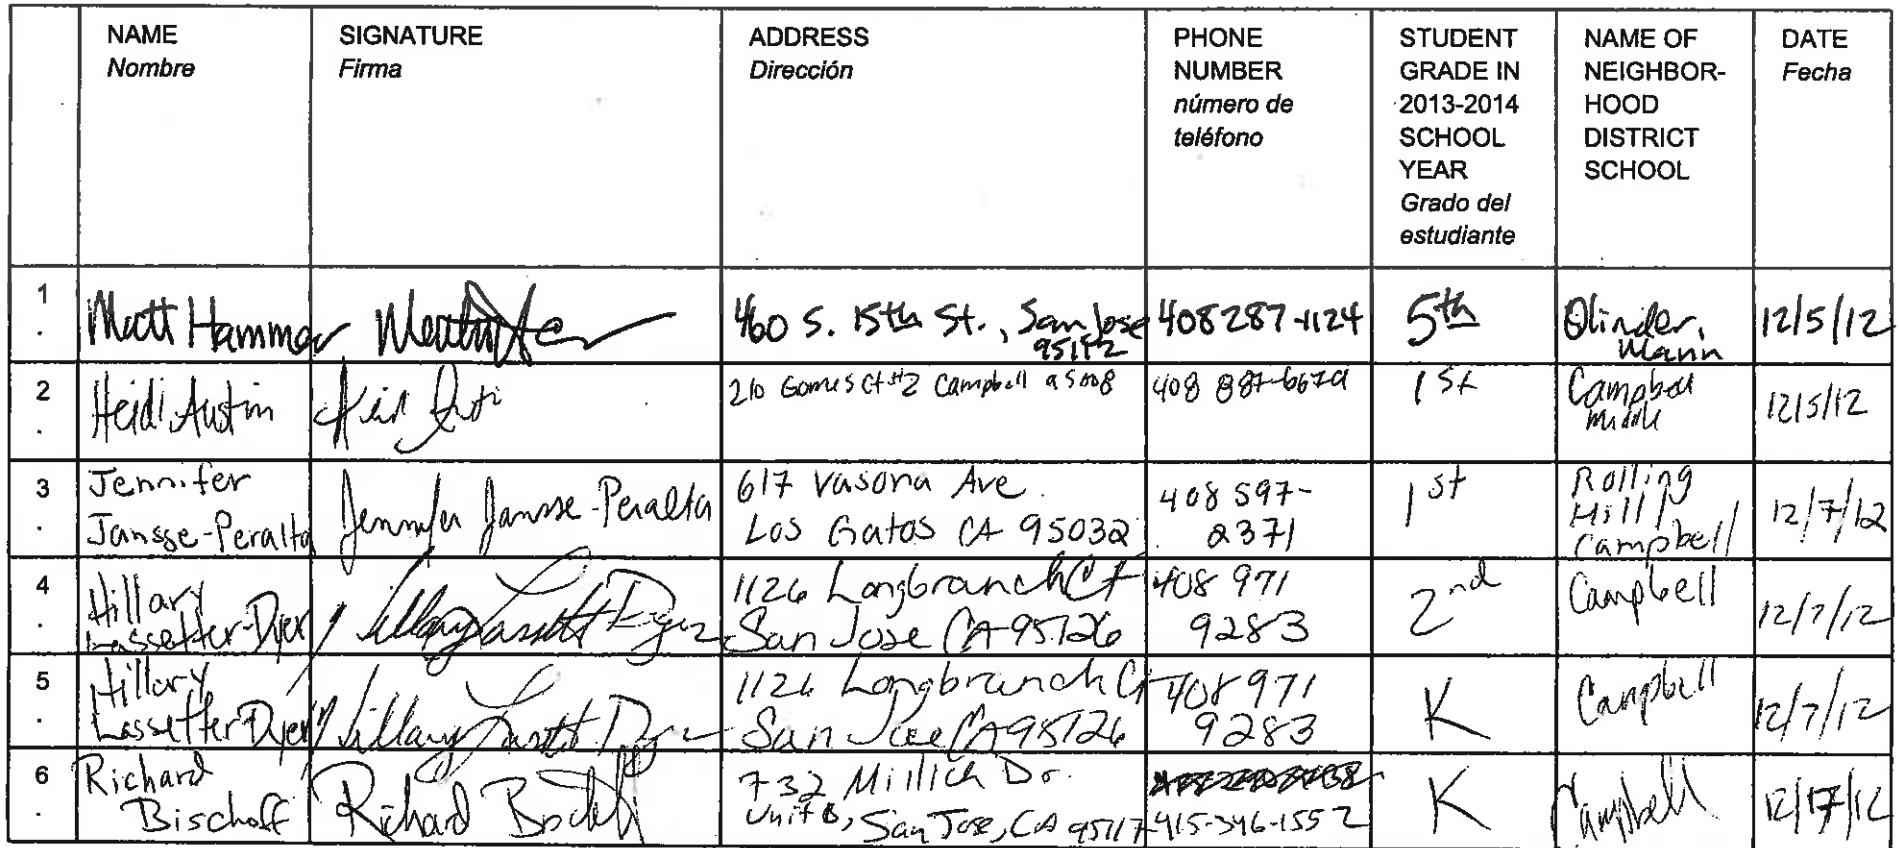 NAME
Nombre
SIGNATURE
Firma
ADDRESS
Dirección
PHONE
NUMBER
número de
teléfono
STUDENT
GRADE IN
2013-2014
SCHOOL
YEAR
Grado del
estudiante
NAME OF
NEIGHBOR-
HOOD
DISTRICT
SCHOOL
DATE
Fecha
1.
Matt Hammer
460 S. 15th St., San Jose
95112
408 287-1124
5th
Olinder,
Mann
12/5/12
2.
Heidi Austin
210 Gomes Ct #2 Campbell
408
1st
Campbell
Middle
12/5/12
3.
Jennifer
Jansse-Peralta
Jennifer Jansse-Peralta
617 Vasona Ave.
Los Gatos CA 95032
408 597-
2371
1st
Rolling
Hill/
Campbell
12/7/12
4.
Hillary
Lassetter-Dyer
Hillary Lassett Dyer
1126 Longbranch Ct
San Jose CA 95126
408 971
9283
2nd
Campbell
12/7/12
5.
Hillary
Lassetter Dyer
Hillary Lassett Dyer
1126 Longbranch Ct
San Jose CA 95126
408 971
9283
K
Campbell
12/7/12
6.
Richard
Bischoff
Richard Bischoff
732 Millich Dr.
Unit B, San Jose, CA 95117
415-346-1552
K
Campbell
12/17/12